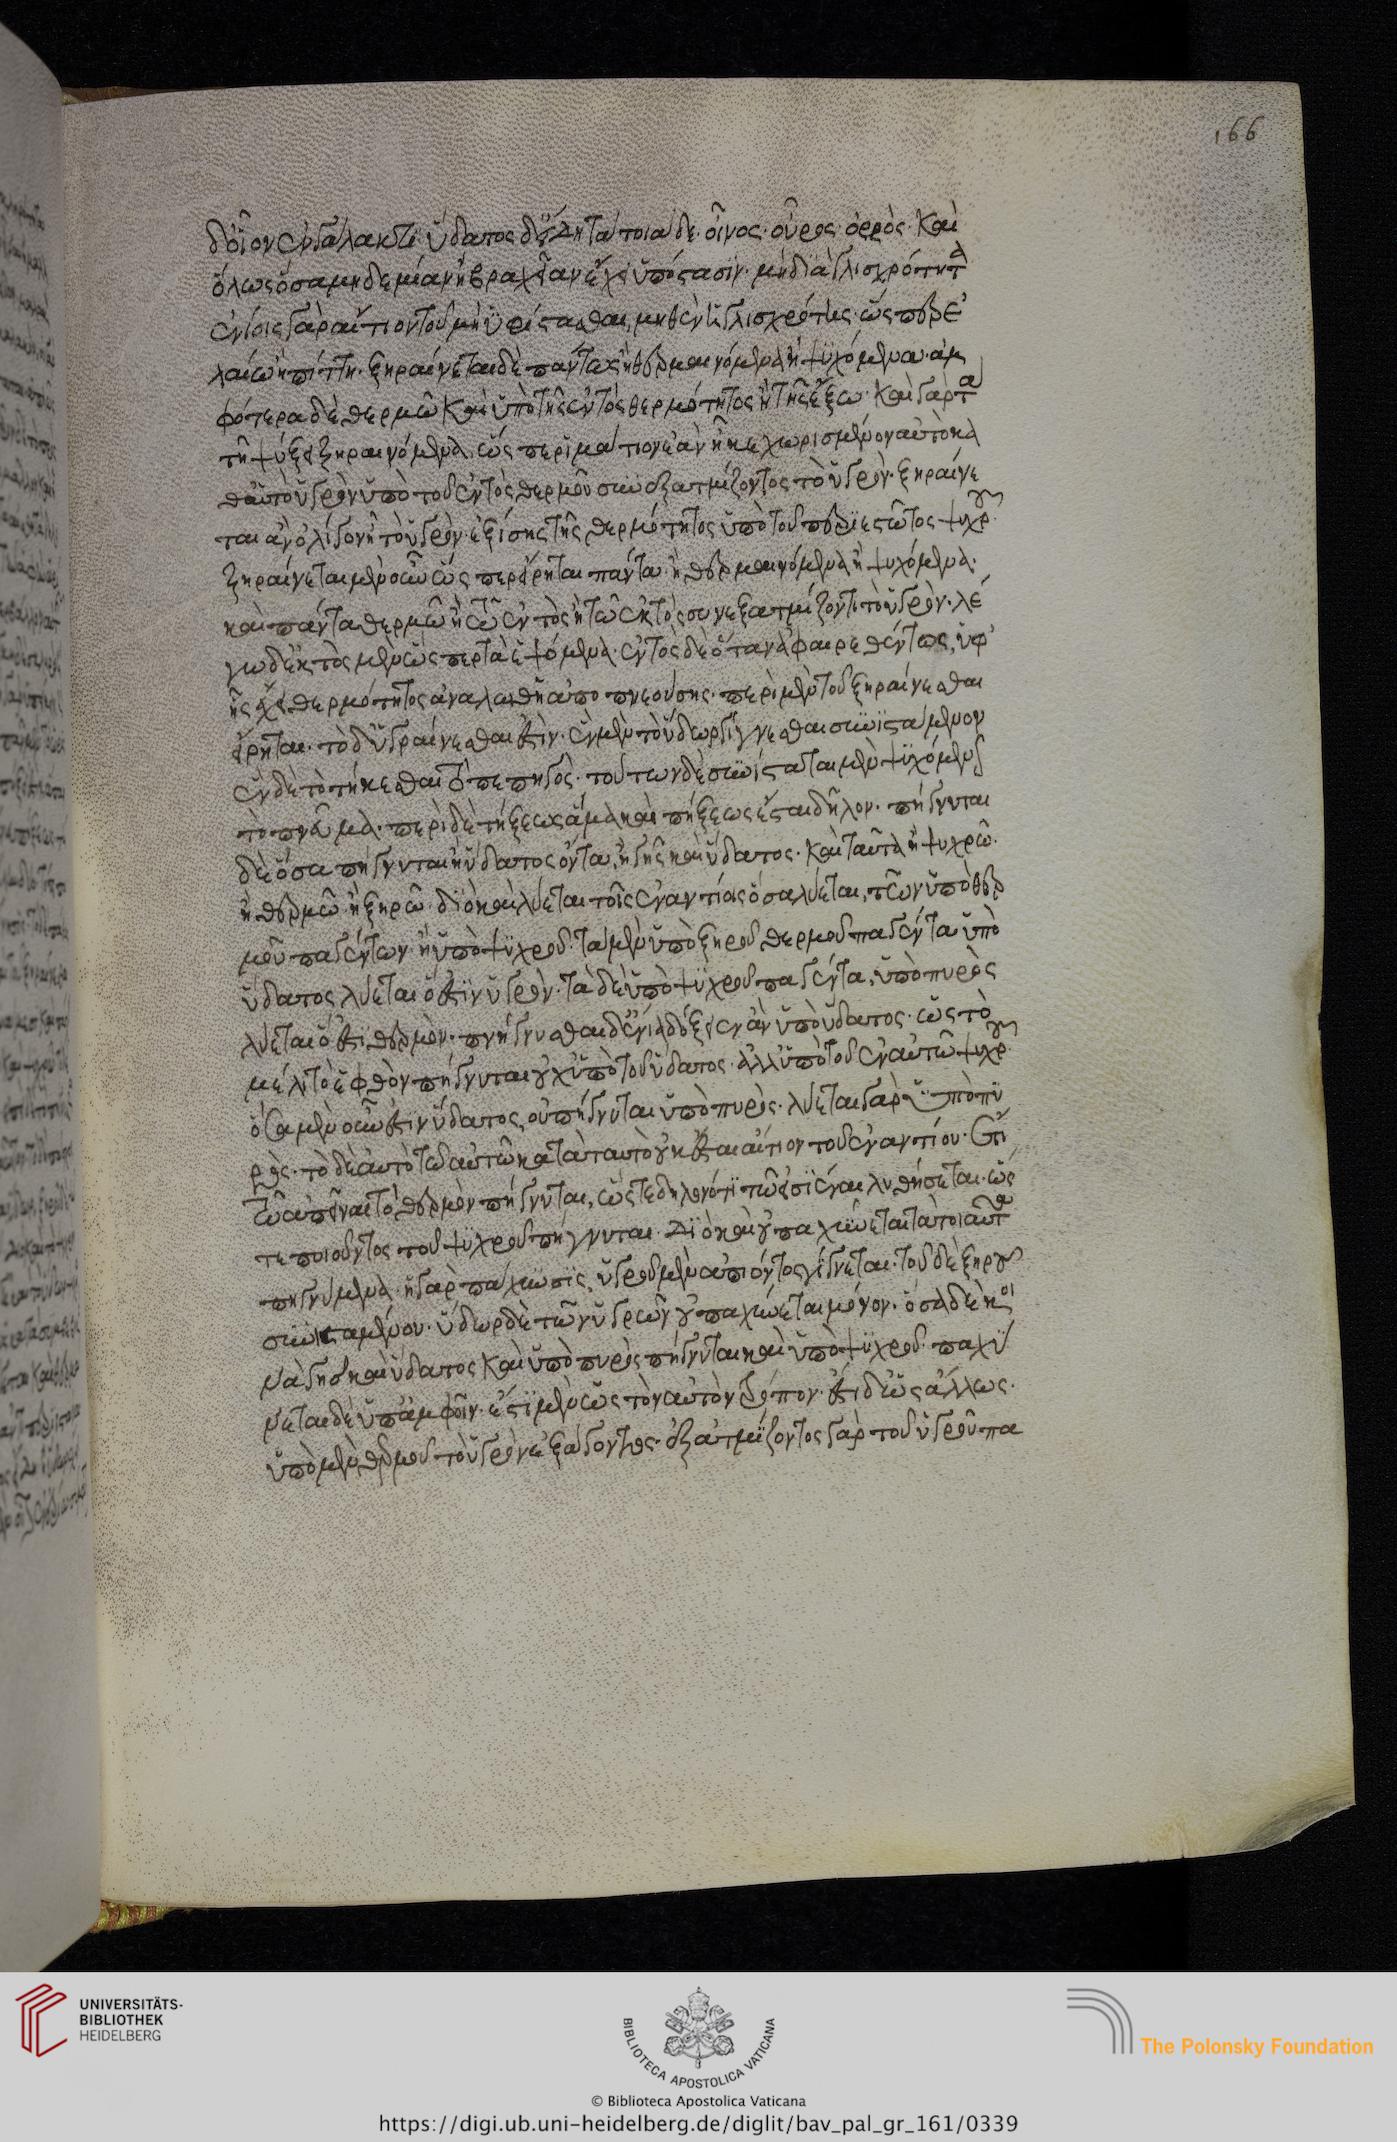 δ' οἷον ἐν γάλακτι ὕδατος δ' εἴδη τὰ τοιάδε· οἶνος· οὖρος· ὀρρὸς· καὶ
ὅλως ὅσα μηδεμίαν ἢ βραχεῖαν ἔχει ὑπόστασιν· μὴ διὰ γλισχρότητα
ἐνίοις γὰρ αἴτιον τοῦ μὴ ὑφίστασθαι, μηθὲν ἡ γλισχρότης· ὥσπερ ἐ
λαίω ἢ πίττη. ξηραίνεται δὲ πάντως ἢ θερμαινόμενα ἢ ψυχόμενα· ἀμ
φότερα δὲ θερμῶ καὶ ὑπὸ τῆς ἐντὸς θερμότητος ἢ τῆς ἔξω· καὶ γὰρ τὰ
τῆ ψύξει ξηραινόμενα, ὥσπερ ἱμάτιον ἐὰν ἦ κεχωρισμένον αὐτὸ κα
θαὑτὸ ὑγρὸν ὑπὸ τοῦ ἐντὸς θερμοῦ συνεξατμίζοντος τὸ ὑγρὸν· ξηραίνε
ται ἂν ὀλίγον ἦ τὸ ὑγρὸν· ἐξίσης τῆς θερμότητος ὑπὸ τοῦ περιεστῶτος ψυχροῦ
ξηραίνεται μὲν οὖν ὥσπερ εἴρηται πάντα ἢ θερμαινόμενα ἢ ψυχόμενα·
καὶ πάντα θερμῶ ἢ τῶ ἐντὸς ἢ τῶ ἐκτὸς συνεξατμίζοντι τὸ ὑγρὸν· λέ
γω δ' ἐκτὸς μὲν ὥσπερ τὰ ἑψόμενα· ἐντὸς δὲ ὅταν ἀφαιρεθέντος, ὑφ'
ἧς ἔχει θερμότητος ἀναλωθῆ ἀποπνεούσης· περὶ μὲν τοῦ ξηραίνεσθαι
εἴρηται· τὸ δ' ὑγραίνεσθαι ἐστὶν· ἓν μὲν τὸ ὕδωρ γίγνεσθαι συνιστάμενον
ἓν δὲ τὸ τήκεσθαι τὸ πεπηγὸς· τούτων δὲ συνίσταται μὲν ψυχόμενον
τὸ πνεῦμα· περὶ δὲ τήξεως ἅμα καὶ πήξεως ἔσται δῆλον· πήγνυται
δὲ ὅσα πήγνυται ἢ ὕδατος ὄντα, ἢ γῆς καὶ ὕδατος· καὶ ταῦτα ἢ ψυχρῶ·
ἢ θερμῶ ἢ ξηρῶ· διὸ καὶ λύεται τοῖς ἐναντίοις ὅσα λύεται, τῶν ὑπὸ θερ
μοῦ παγέντων ἢ ὑπὸ ψυχροῦ· τὰ μὲν ὑπὸ ξηροῦ θερμοῦ παγέντα ὑπὸ
ὕδατος λύεται ὅ ἐστιν ὑγρὸν· τὰ δὲ ὑπὸ ψυχροῦ παγέντα, ὑπὸ πυρὸς
λύεται ὅ ἐστι θερμὸν· πήγνυσθαι δ' ἔνια δόξειεν ἂν ὑπὸ ὕδατος· ὡς τὸ
μέλι τὸ ἑφθὸν πήγνυται οὐχ ὑπὸ τοῦ ὕδατος· ἀλλ' ὑπὸ τοῦ ἐν αὐτῶ ψυχροῦ
ὅσα μὲν οὖν ἐστιν ὕδατος, οὐ πήγνυται ὑπὸ πυρὸς· λύεται γὰρ ὑπὸ πυ
ρὸς· τὸ δὲ αὐτὸ τῶ αὐτῶ κατὰ ταυτὸ οὐκ ἔσται αἴτιον τοῦ ἐναντίου· ἔτι
τῶ ἀπιέναι τὸ θερμὸν πήγνυται, ὥστε δηλονότι τῶ εἰσιέναι λυθήσεται· ὥσ
τε ποιοῦντος τοῦ ψυχροῦ πήγνυται· διὸ καὶ οὐ παχύνεται τὰ τοιαῦτα
πηγνύμενα· ἡ γὰρ πάχυνσις, ὑγροῦ μὲν ἀπιόντος γίγνεται· τοῦ δὲ ξηροῦ
συνισταμένου· ὕδωρ δὲ τῶν ὑγρῶν οὐ παχύνεται μόνον· ὅσα δὲ κοι
νὰ γῆς καὶ ὕδατος καὶ ὑπὸ πυρὸς πήγνυται καὶ ὑπὸ ψυχροῦ· παχύ
νεται δὲ ὑπ' ἀμφοῖν· ἔστι μὲν ὡς τὸν αὐτὸν τρόπον· ἔστι δ' ὡς ἄλλως·
ὑπὸ μὲν θερμοῦ τὸ ὑγρὸν ἐξάγοντος· ἐξατμίζοντος γὰρ τοῦ ὑγροῦ πα
166
UNIVERSITÄTS-
BIBLIOTHEK
HEIDELBERG
BIBLIOTECA APOSTOLICA VATICANA
© Biblioteca Apostolica Vaticana
The Polonsky Foundation
https://digi.ub.uni-heidelberg.de/diglit/bav_pal_gr_161/0339